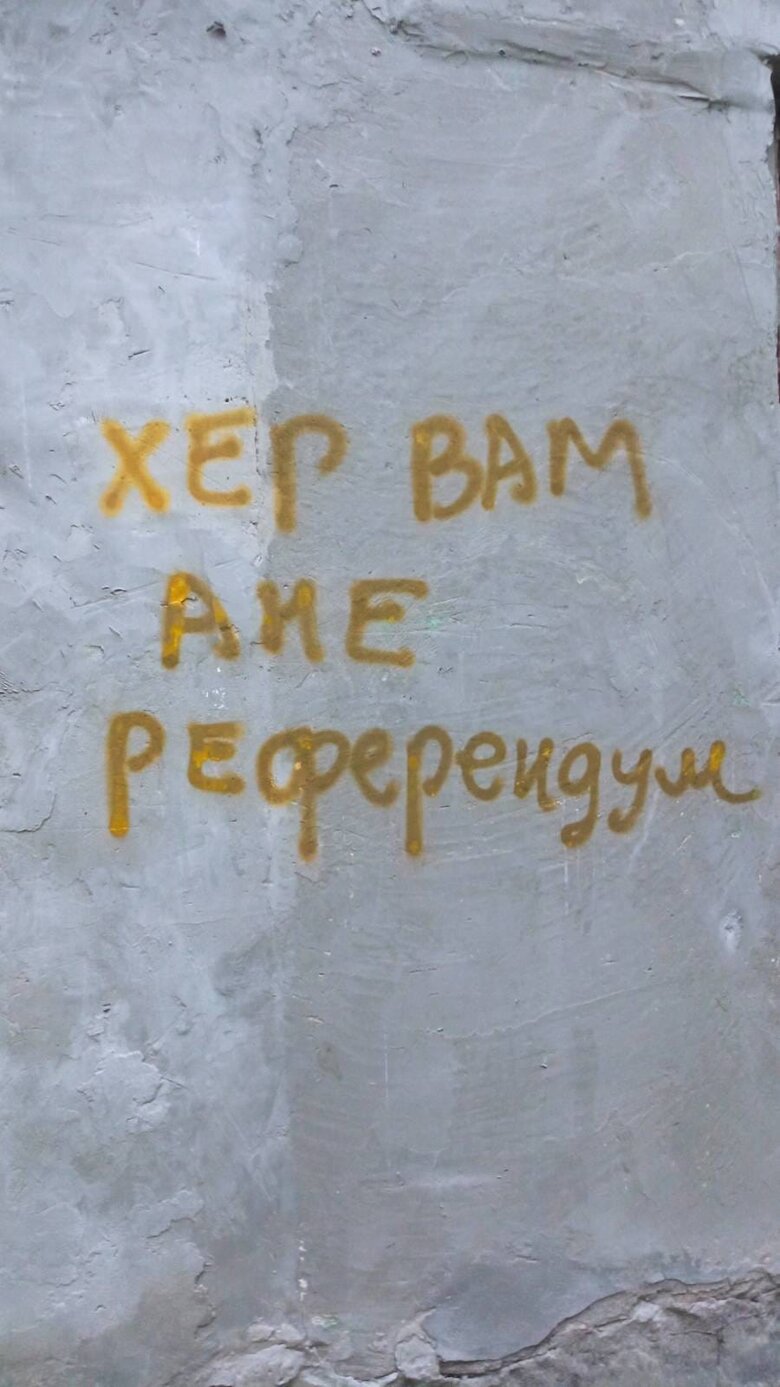 ХЕР ВАМ
АНЕ
РЕФерендум